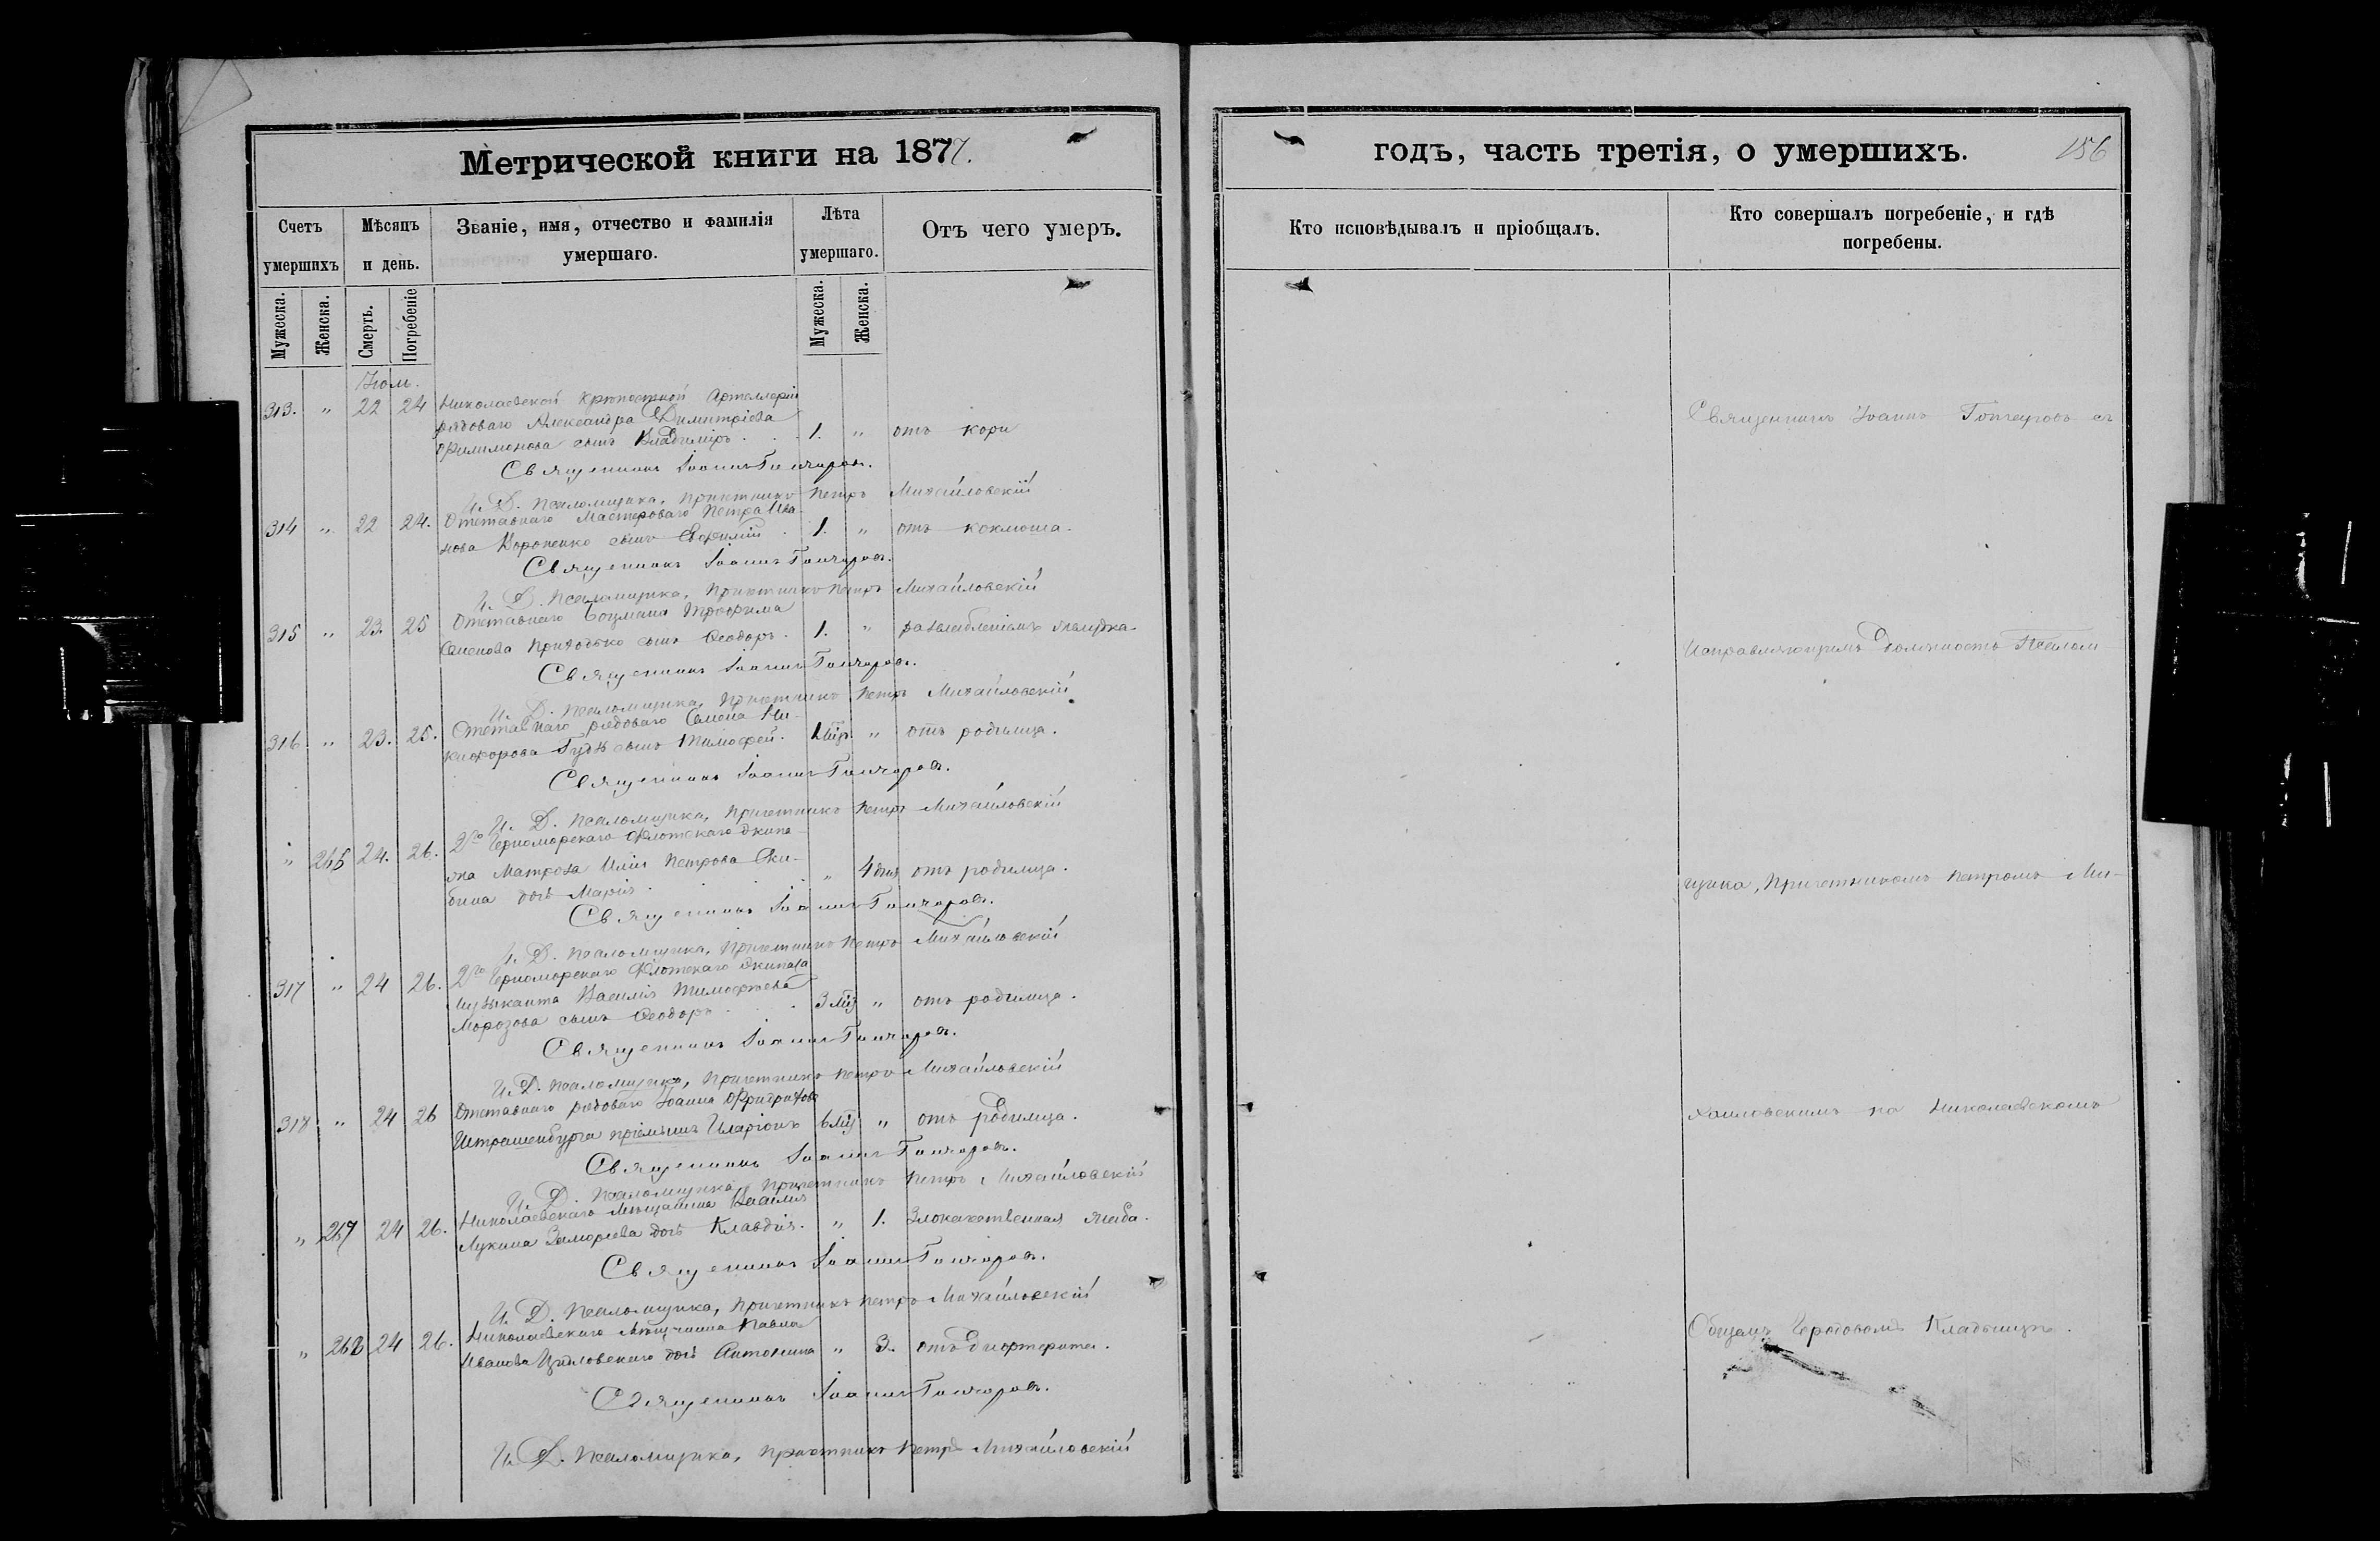 Метрической книги на 1877.
Счетъ умершихъ
Мѣсяцъ и день.
Званіе, имя, отчество и фамилія умершаго.
Лѣта умершаго.
Отъ чего умеръ.
Мужеска.
Женска.
Смерть.
Погребеніе
Мужеска.
Женска.
Іюль.
Николаевской крѣпостной Артиллеріи
313. " 22 24 рядоваго Александра Димитріева
Филимонова сынъ Владиміръ. 1. " отъ кори
Священникъ Іоаннъ Гончаровъ.
И. Д. псаломщика, причетникъ Петръ Михайловскій
314 " 22 24. Отставнаго Мастероваго Петра Ива-
нова Короненко сынъ Евфимій 1. " отъ коклюша.
Священникъ Іоаннъ Гончаровъ.
И. Д. псаломщика, причетникъ Петръ Михайловскій
315 " 23. 25 Отставнаго Боцмана Трофима
Семенова Приходько сынъ Ѳеодоръ. 1. "
Священникъ Іоаннъ Гончаровъ.
И. Д. псаломщика, причетникъ Петръ Михайловскій
316 " 23. 25. Отставнаго рядоваго Семена Ни-
кифорова сынъ Тимофей. " отъ родимца.
Священникъ Іоаннъ Гончаровъ.
И. Д. псаломщика, причетникъ Петръ Михайловскій
" 24. 26. 2го Черноморскаго Флотскаго Экипа-
жа Матроса Иліи Петрова Ски-
бина дочь Марія. " 4 дня отъ родимца.
Священникъ Іоаннъ Гончаровъ.
И. Д. псаломщика, причетникъ Петръ Михайловскій
317 " 24 26. 2го Черноморскаго Флотскаго Экипажа
Музыканта Василія Тимофѣева
Морозова сынъ Ѳеодоръ. 3 мѣс " отъ родимца.
Священникъ Іоаннъ Гончаровъ.
И. Д. псаломщика, причетникъ Петръ Михайловскій
318 " 24 26 Отставнаго рядоваго Іоанна Фридрихова
Штрашенбурга пріемышъ Иларіонъ 6 мѣс " отъ родимца.
Священникъ Іоаннъ Гончаровъ.
И. Д. псаломщика, причетникъ Петръ Михайловскій
" 267 24 26. Николаевскаго Мѣщанина Василія
Лукина дочь Клавдія. " 1. Злокачественная жаба.
Священникъ Іоаннъ Гончаровъ.
И. Д. псаломщика, причетникъ Петръ Михайловскій
" 268 24 26. Николаевскаго Мѣщанина Павла
Иванова дочь Антонина " 3. отъ дифтерита.
Священникъ Іоаннъ Гончаровъ.
И. Д. псаломщика, причетникъ Петръ Михайловскій
годъ, часть третія, о умершихъ.
156
Кто исповѣдывалъ и пріобщалъ.
Кто совершалъ погребеніе, и гдѣ погребены.
Священникъ Іоаннъ Гончаровъ съ
Исправляющимъ должность Псалом-
щика, Причетникомъ Петромъ Ми-
хайловскимъ на Николаевскомъ
Общемъ Городовомъ Кладбищѣ.